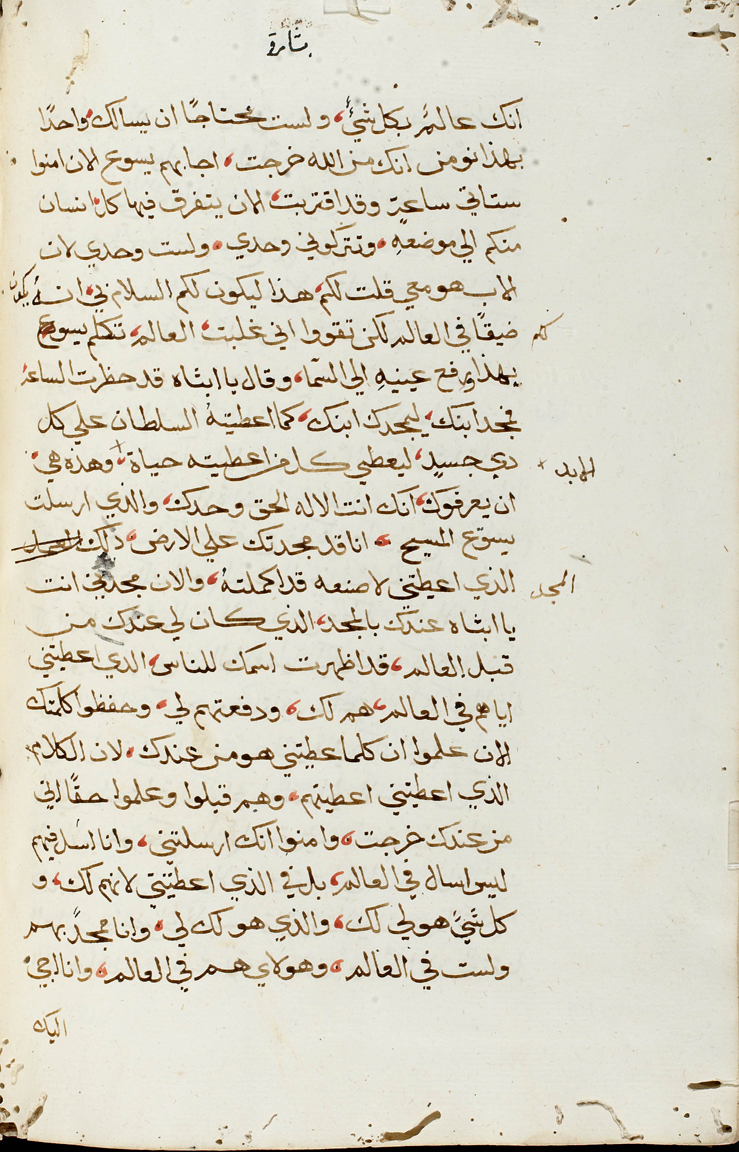 بشارة
انك عالمٌ بكل شيءٍ، ولست محتاجًا ان يسالك واحدًا
بهذا نومن انك من الله خرجت، اجابهم يسوع الان امنوا
ستاتي ساعة وقد اقتربت، الان يتفرق فيها كل انسان
منكم الي موضعهِ، وتتركوني وحدي، ولست وحدي لان
الاب هو معي قلت لكم، هذا ليكون لكم السلام فيَّ، انه يكون
ضيقًا في العالم لكن تقووا اني غلبت، العالم، تكلم يسوع
لكم
بهذا ورفع عينيهِ الي السما، وقال يا ابتاه قد حظرت الساعة
مجد ابنك، ليمجدك ابنك، كما اعطيتهُ السلطان علي كل
دي جسدٍ، ليعطي كل من اعطيته حياة، وهذه هي
الابد
ان يعرفوك، انك انت الاله الحق وحدك، والذي ارسلت
يسوع المسيح، انا قد مجدتك علي الارض، ذلك العمل
الذي اعطيتني لاصنعه قد اكملتهُ، والان مجدني انت
المجد
يا ابتاه عندك بالمجد، الذي كان لي عندك من
قبل العالم، قد اظهرت اسمك للناس، الذي اعطيتني
اياهم في العالم، هم لك، ودفعتهم لي، وحفظوا كلمتك
الان علموا ان كلما عطيتني هو من عندك، لان الكلام
الذي اعطيتني اعطيتهم، وهم قبلوا وعلموا حقًا اني
من عندك خرجت، وامنوا انك ارسلتني، وانا اسل فيهم
ليس اسال في العالم، بل في الذي اعطيتني لانهم لك، و
كل شيءٍ هو لي لك، والذي هو لك لي، وانا ممجدً بهم
ولست في العالم، وهولاي هم في العالم، وانا اجي
اليك